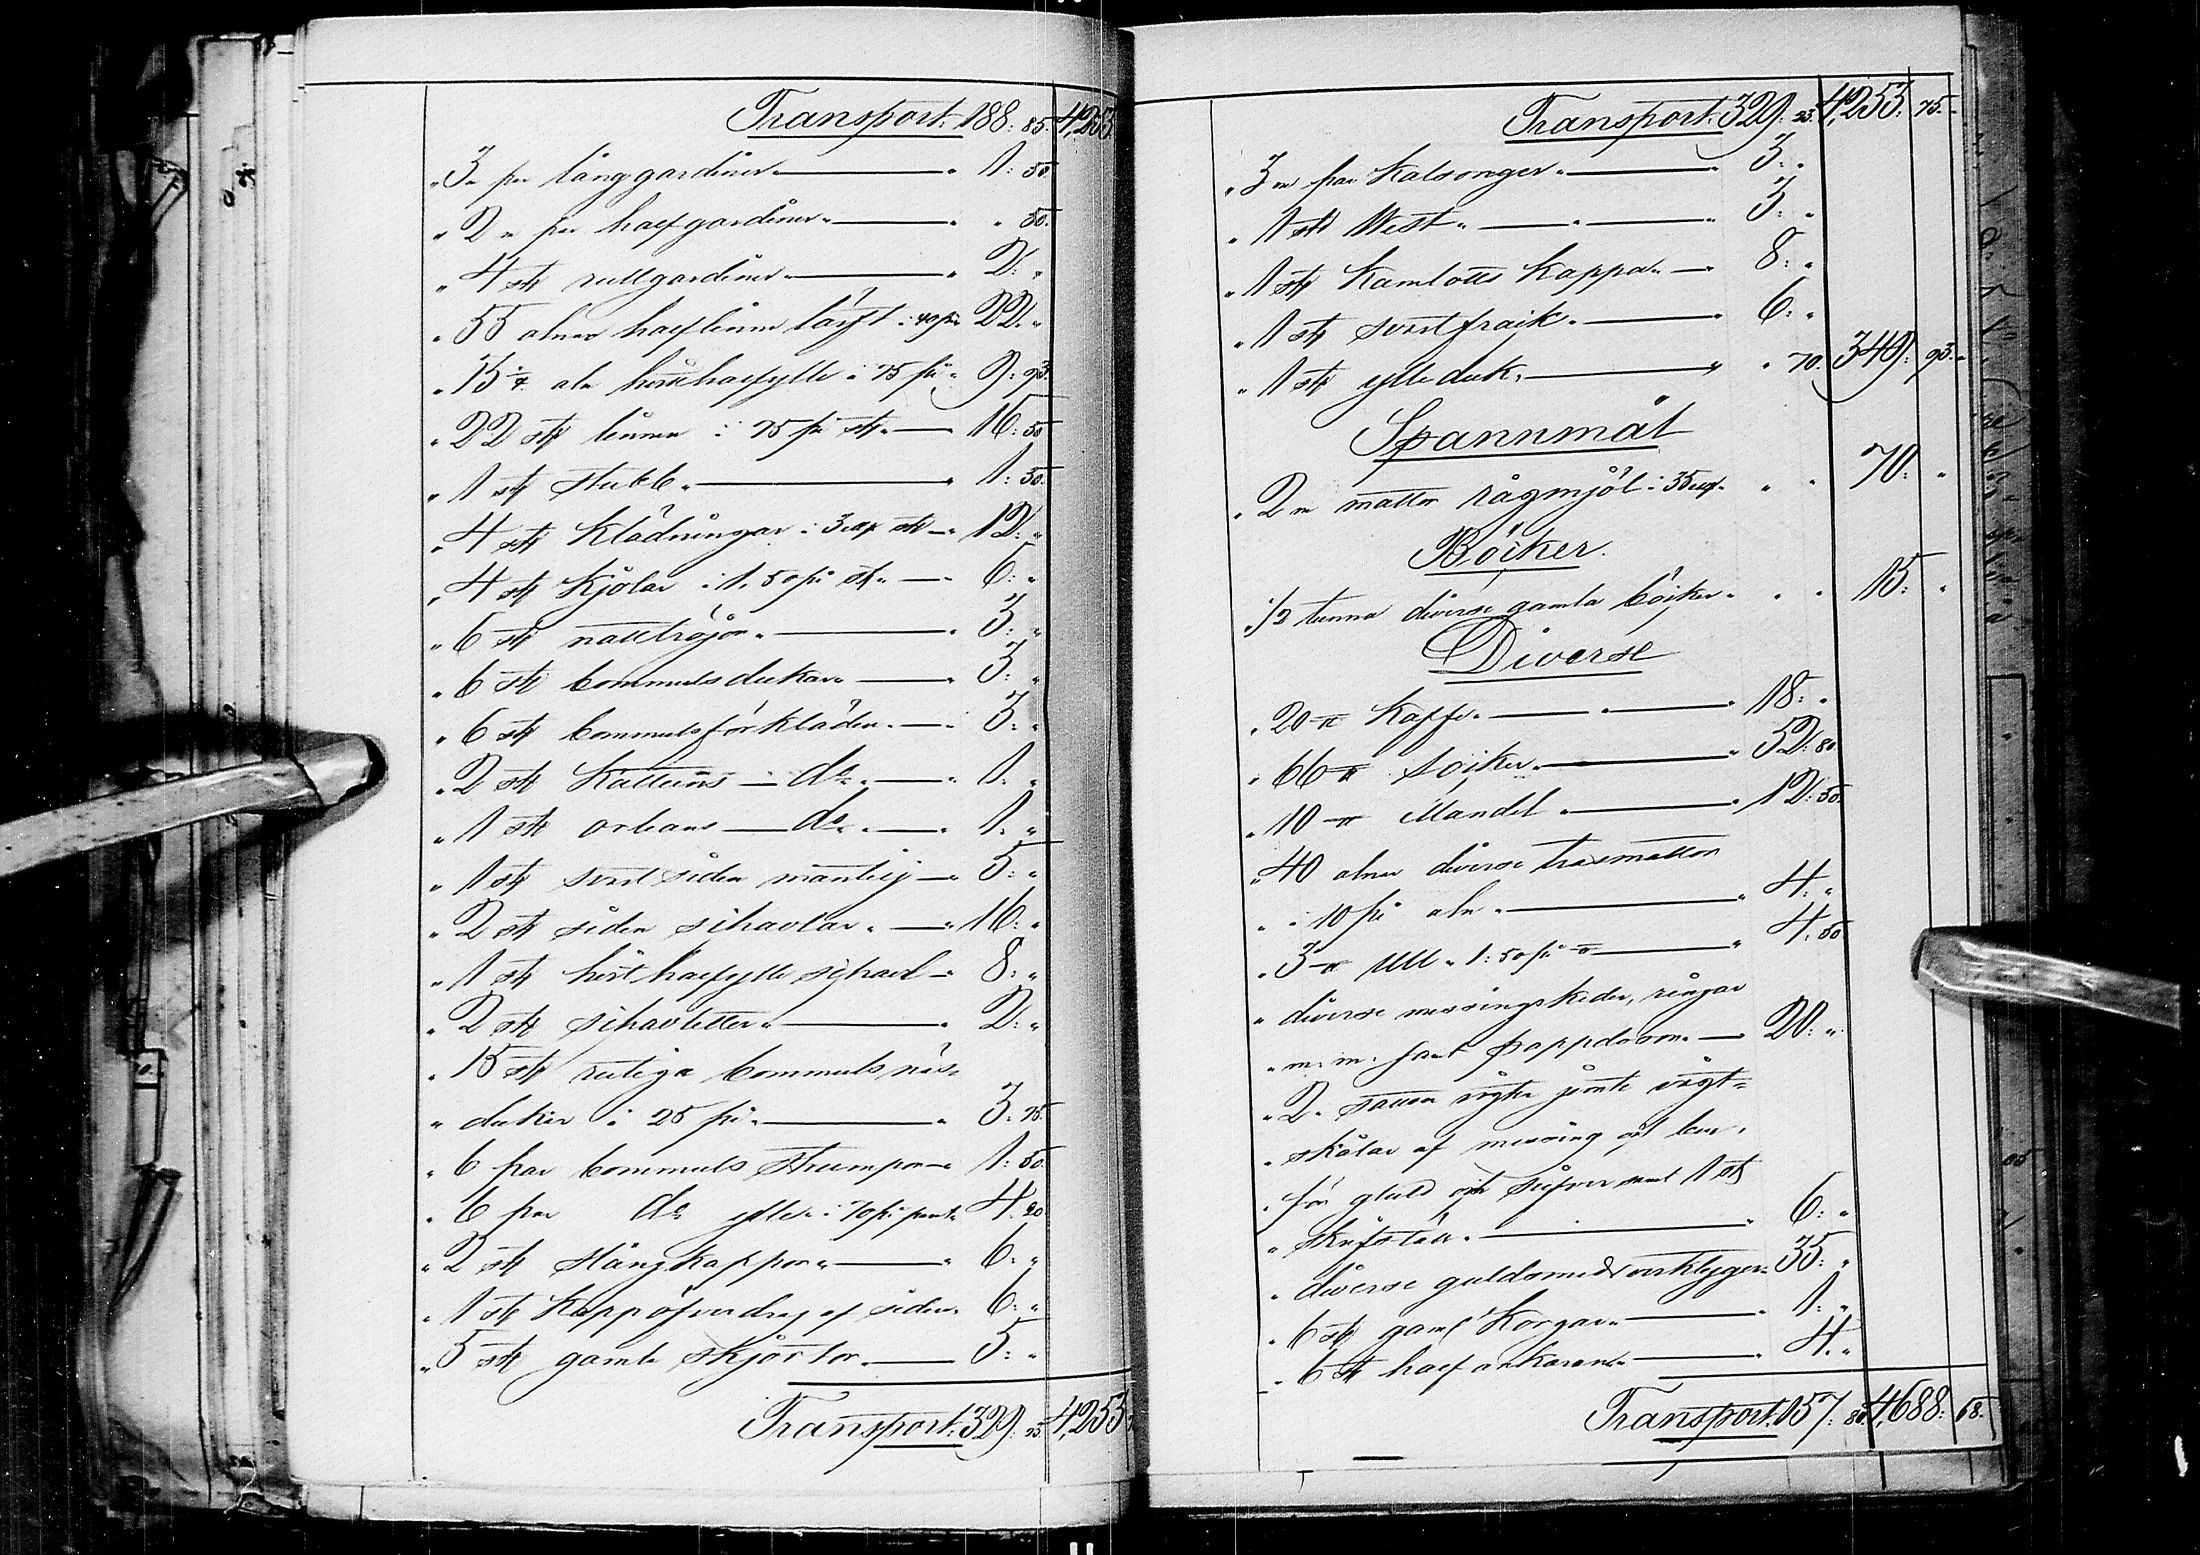 Transport. 188: 85. 4,253
" 3 " par långgardiner " — " 1: 50
" 2 " par halfgardiner " — " " 50.
" 4 st rullgardiner " — " 2: "
" 55 alnar halflinne lärft i 40 öre 22: "
" 13 ¼ aln halfylle i 75 öre " 9: 93
" 22 st linnen i 75 öre st. — 16: 50
" 1 st stubb " — " 1: 50.
" 4 st Klädningar i 3 st — " 12: "
" 4 st Kjolar i 1. 50 öre st. — " 6: "
" 6 st nattröjor " — " 3: "
" 6 st bommulsdukar " — " 3: "
" 6 st bommulsförkläden — " 3: "
" 2 st Kattuns — do — " 1: "
" 1 st orleans — do " — " 1: "
" 1 st svart siden mantilj — " 5: "
" 2 st siden schavlar " — " 16: "
" 1 st halfylle schavl — " 8: "
" 2 st schavletter " — " 2: "
" 15 st rutiga bommuls näs-
" dukar i 25 öre " — " 3: 75.
" 6 par bommuls strumpor — " 1: 50
" 6 par do ylle i 70 öre paret 4: 20
" 2 st slängkappor " — " 6: "
" 1 st Kappöfverdrag af siden " 6: "
" 5 st gamla skjortor — 5: "
Transport. 329: 25. 4,253
Transport. 329: 25. 4,253: 75. -
" 3 " par Kalsonger " — " 3: "
" 1 st West " — " — " 3: "
" 1 st Kamlotts Kappa " — " 8: "
" 1 st svart frack " — " 6: "
" 1 st ylleduk " — " " 70. 349: 93. -
Spannmål
" 2 " mattor rågmjöl i 35 " " 70: "
Böcker.
" 1/2 tunna diverse gamla böcker " " " 15: "
Diverse
" 20 ℔ Kaffe " — " — " 18: "
" 66 ℔ Socker " — " 52: 80
" 10 ℔ Mandel " — " 12: 50.
" 40 alnar diverse trasmattor
" i 10 öre aln " — " 4: "
" 3 ℔ Ull " 1: 50 öre ℔ — " 4. 50
" diverse messingskedor, ringar
" m. m. samt pappdosor " — 20: "
" 2 " vigter jemte vigt-
" skålar af messing och ben,
" för guld och silfver samt 1 st
" — " 6: "
" diverse guldsmedsverktyger " 35: "
" 6 st gaml Korgar " — " 1: "
" 6 st halfankaren " — " 4. "
Transport. 157: 80. 4,688: 68. -